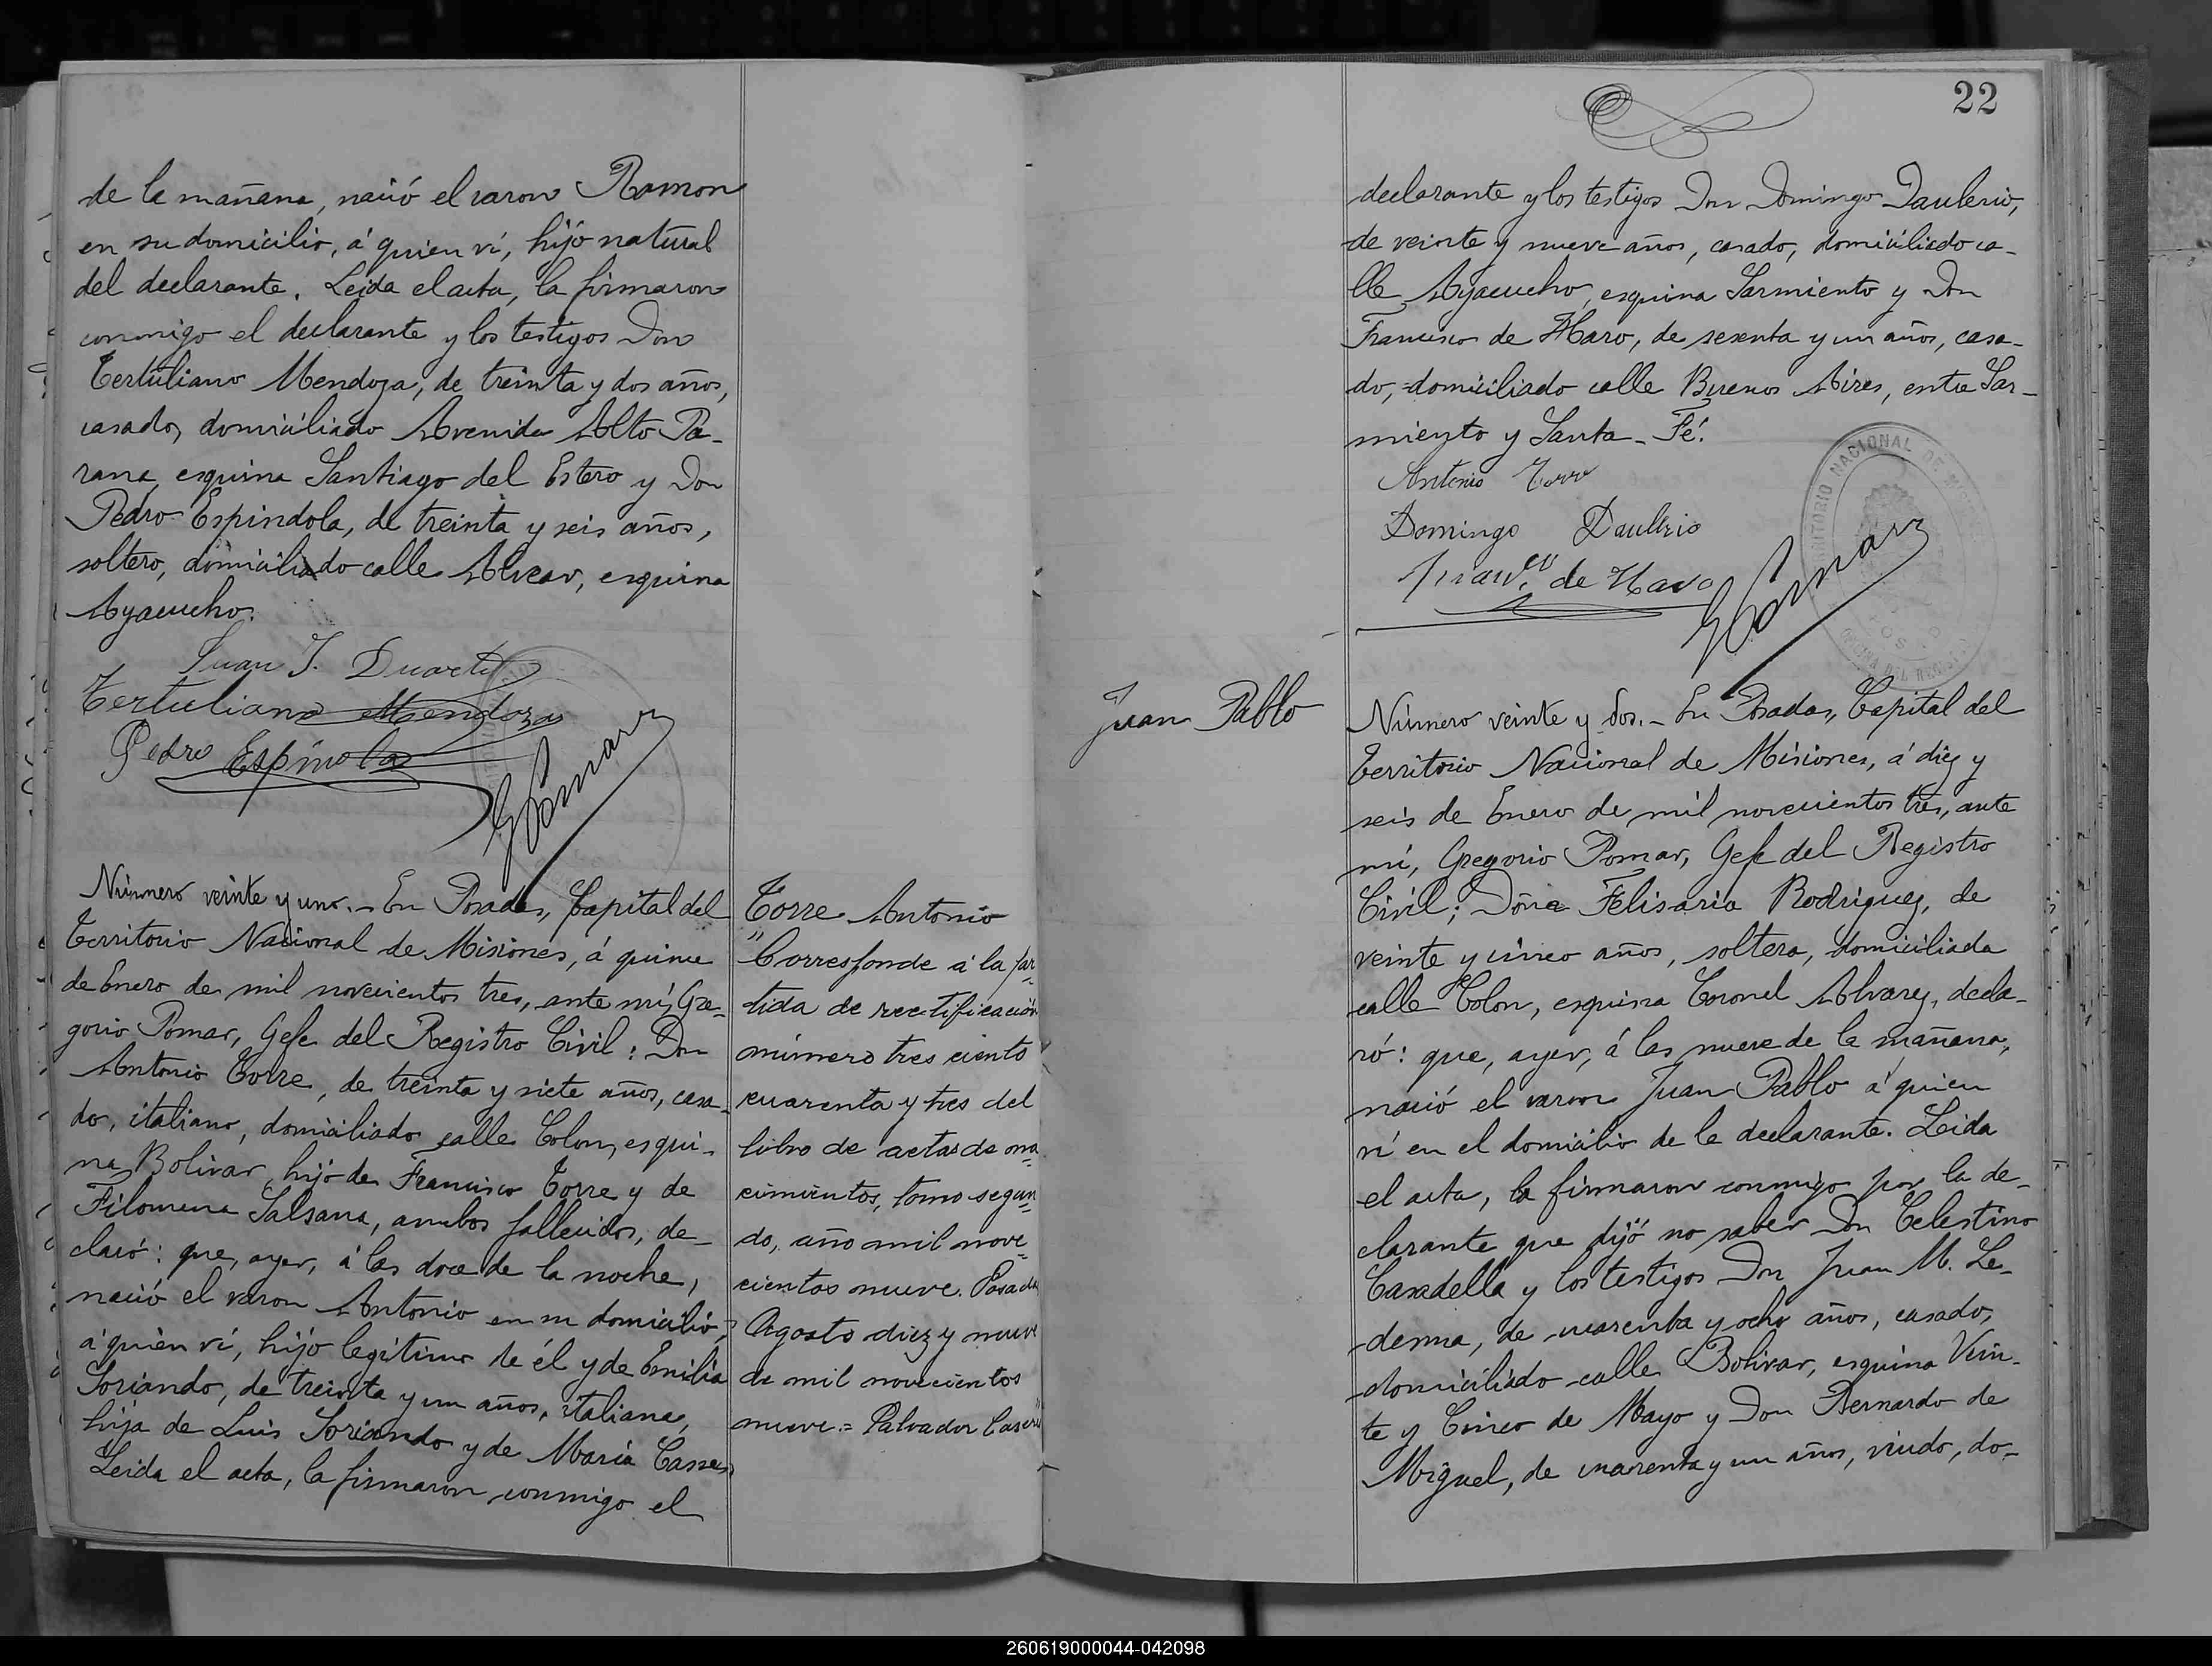 de la mañana, nació el varon Ramon
en su domicilio, á quien ví, hijo natural
del declarante. Leida el acta, la firmaron
conmigo el declarante y los testigos Don
Tertuliano Mendoza, de treinta y dos años,
casado, domiciliado Avenida Alto Pa-
rana esquina Santiago del Estero y Don
Pedro Espindola, de treinta y seis años,
soltero, domiciliado calle Alvear, esquina
Ayacucho.
Juan J. Duarte
Tertuliano Mendoza
Pedro Espinola
GPomar
Número veinte y uno.- En Posadas, Capital del
Territorio Nacional de Misiones, á quince
de Enero de mil novecientos tres, ante mí, Gre-
gorio Pomar, Gefe del Registro Civil: Don
Antonio Torre, de treinta y siete años, casa-
do, italiano, domiciliado calle Colon, esqui-
na Bolivar, hijo de Francisco Torre y de
Filomena Salsana, ambos fallecidos, de-
claró: que, ayer, á las doce de la noche,
nació el varon Antonio en su domicilio,
á quien ví, hijo legítimo de él y de Emilia
Soriando, de treinta y un años, italiana,
hija de Luis Soriando y de María
Leida el acta, la firmaron conmigo el
Torre Antonio
"Corresponde á la par
tida de rectificación
número tres ciento
cuarenta y tres del
libro de actas de na
cimientos, tomo segun
do, año mil nove
cientos nueve. Posadas
Agosto diez y nueve
de mil novecientos
nueve.= Salvador
22
declarante y los testigos Don Domingo Daulerio,
de veinte y nueve años, casado, domiciliado ca-
lle Ayacucho, esquina Sarmiento y Don
Francisco de Haro, de sesenta y un años, casa-
do, domiciliado calle Buenos Aires, entre Sar-
miento y Santa-Fé.
Antonio Torre
Domingo Daulerio
Franco de Haro
GPomar
TERRITORIO NACIONAL DE
Juan Pablo
Número veinte y dos.- En Posadas, Capital del
Territorio Nacional de Misiones, á diez y
seis de Enero de mil novecientos tres, ante
mí, Gregorio Pomar, Gefe del Registro
Civil; Doña Felisaria Rodriguez, de
veinte y cinco años, soltera, domiciliada
calle Colon, esquina Coronel Alvarez, decla-
ró: que, ayer, á las nueve de la mañana,
nació el varon Juan Pablo á quien
ví en el domicilio de la declarante. Leida
el acta, la firmaron conmigo por la de-
clarante que dijó no saber Don Celestino
Casadella y los testigos Don Juan M. Le-
desma, de cuarenta y ocho años, casado,
domiciliado calle Bolivar, esquina Vein-
te y Cinco de Mayo y Don Bernardo de
Miguel, de cuarenta y un años, viudo, do-
260619000044-042098